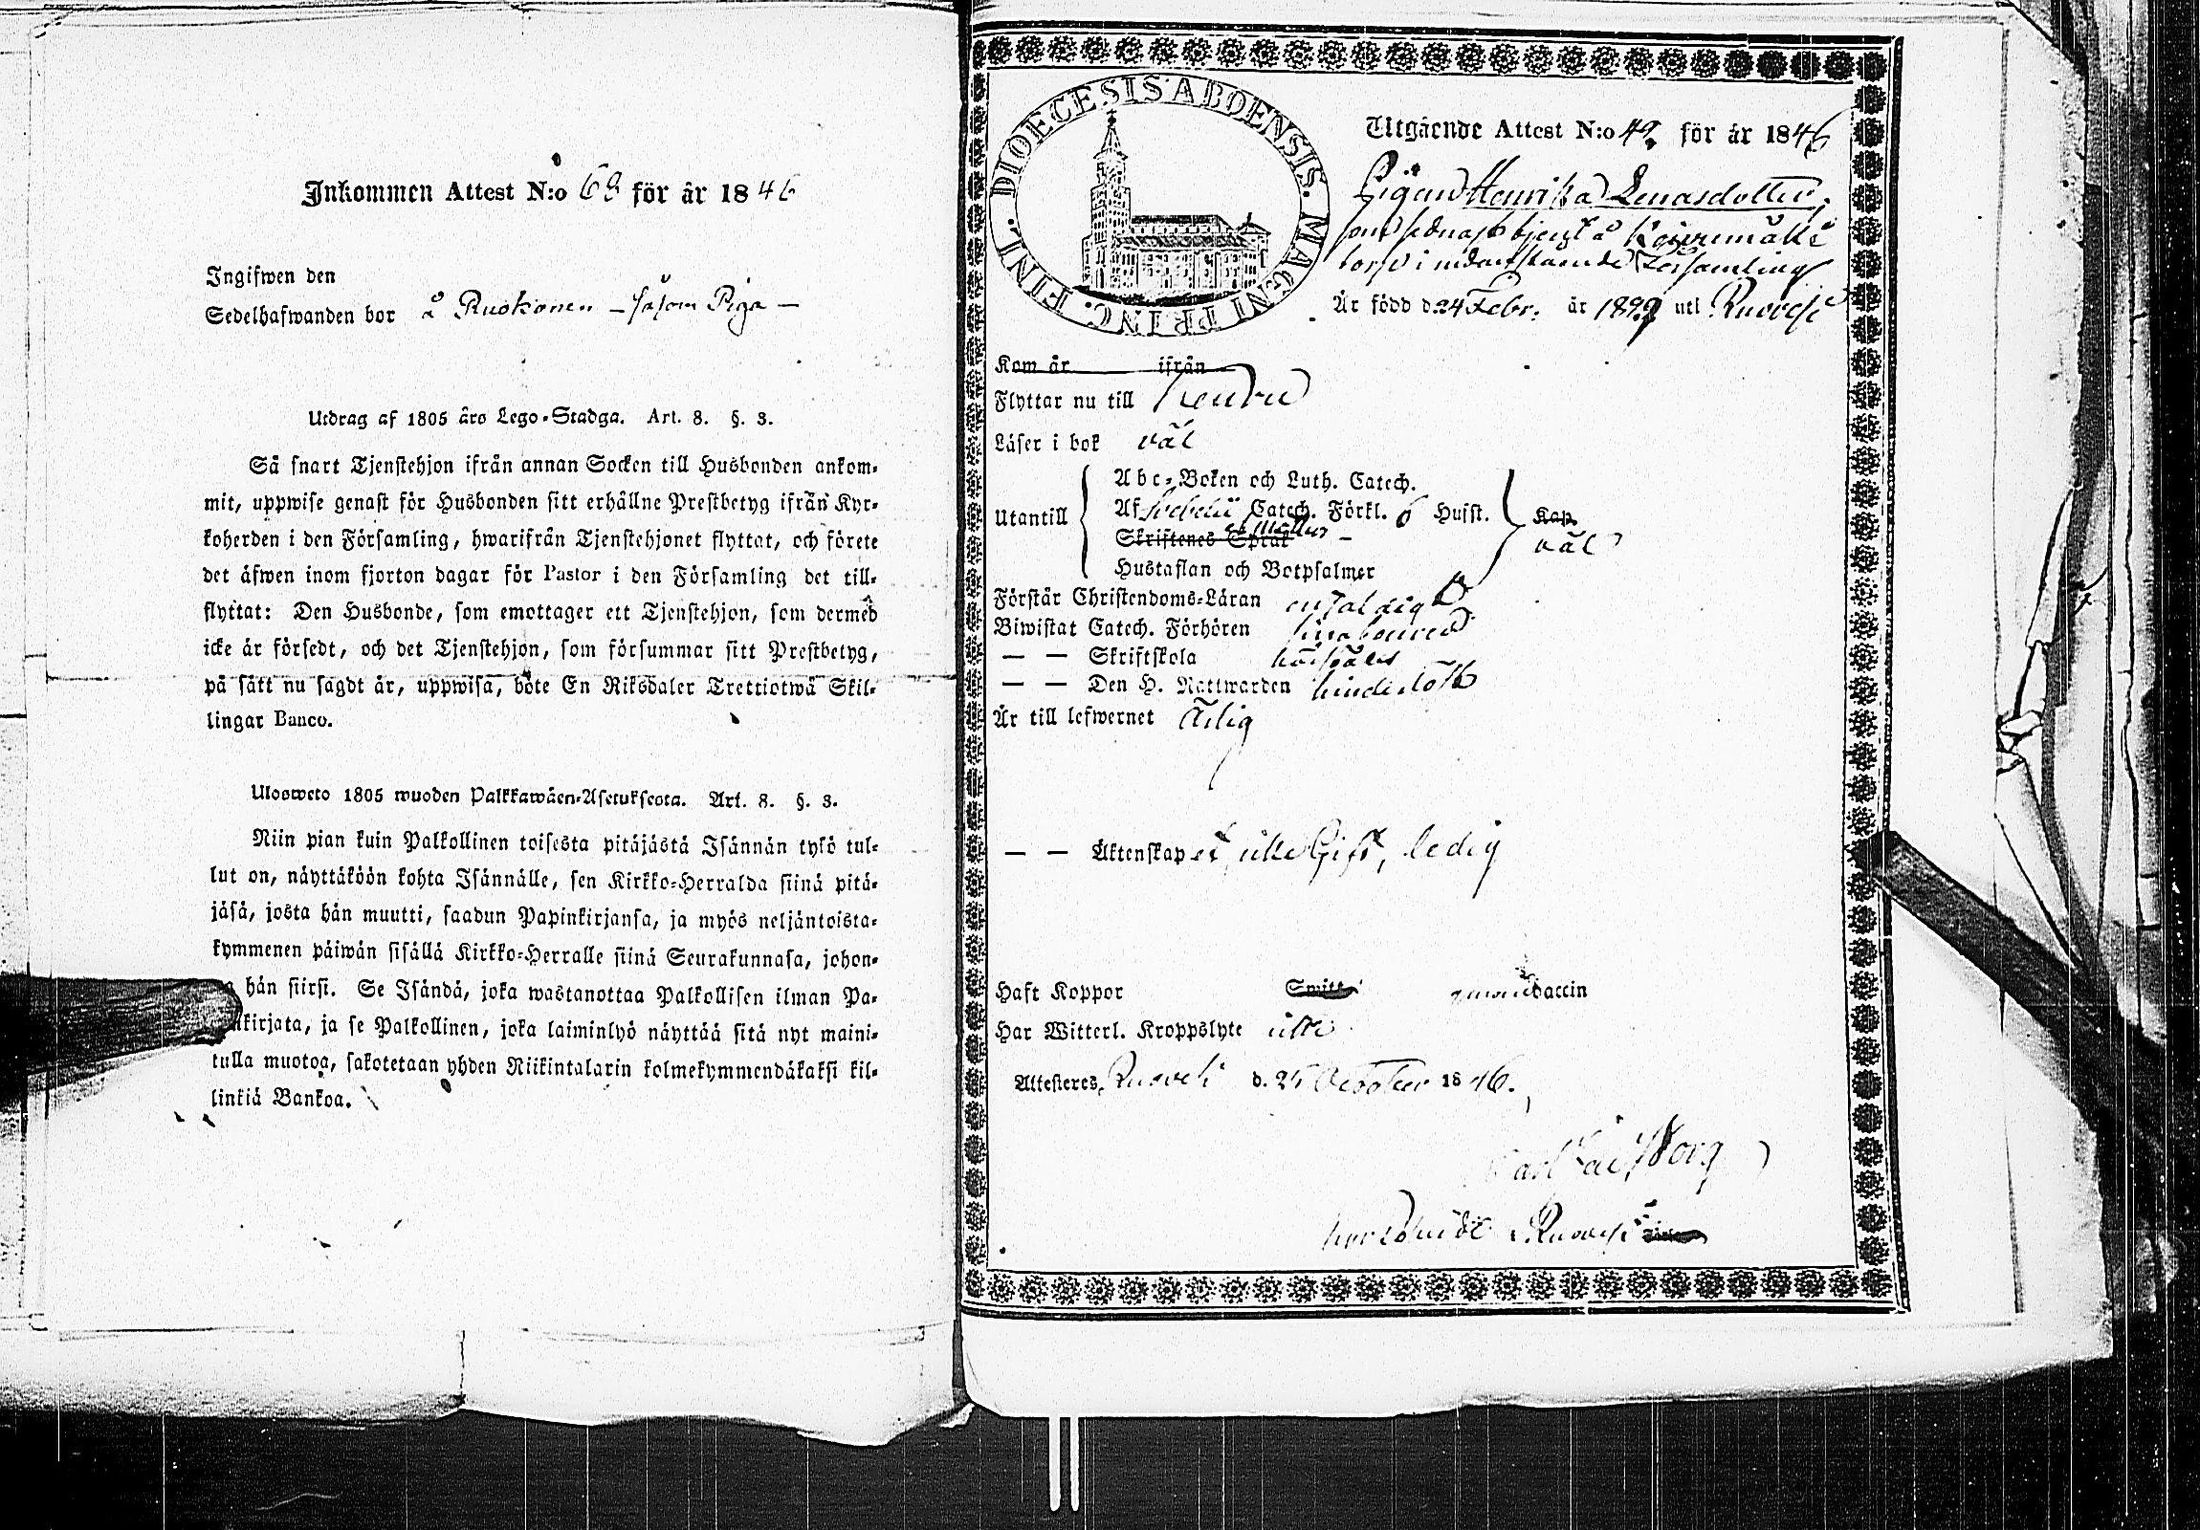 Inkommen Attest N:o 68 för år 1846
Ingifwen den
Sedelhafwanden bor å Ruokonen – såsom Piga –
Utdrag af 1805 års Lego-Stadga. Art. 8. §. 3.
Så snart Tjenstehjon ifrån annan Socken till Husbonden ankom-
mit, uppwise genast för Husbonden sitt erhållne Prestbetyg ifrån Kyr-
koherden i den Församling, hwarifrån Tjenstehjonet flyttat, och förete
det äfwen inom fjorton dagar för Pastor i den Församling det till-
flyttat: Den Husbonde, som emottager ett Tjenstehjon, som dermed
icke är försedt, och det Tjenstehjon, som försummar sitt Prestbetyg,
på sätt nu sagdt är, uppwisa, böte En Riksdaler Trettiotwå Skil-
lingar Banco.
Ulosweto 1805 wuoden Palkkawäen-Asetuksesta. Art. 8. §. 3.
Niin pian kuin Palkollinen toisesta pitäjästä Isännän tykö tul-
lut on, näyttäköön kohta Isännälle, sen Kirkko-Herralda siinä pitä-
jäsä, josta hän muutti, saadun Papinkirjansa, ja myös neljäntoista-
kymmenen päiwän sisällä Kirkko-Herralle siinä Seurakunnasa, johon-
hän siirsi. Se Isändä, joka wastanottaa Palkollisen ilman Pa-
kirjata, ja se Palkollinen, joka laiminlyö näyttää sitä nyt maini-
tulla muotoa, sakotetaan yhden Riikintalarin kolmekymmendäkaksi kil-
linkiä Bankoa.
DIOECESIS ABOENSIS. MAGNI PRINC. FINL.
Utgående Attest N:o 42 för år 1846
Pigan Henrika Lenasdotter,
som sednast tjent å
torp i nedanstående Församling
Är född d. 24 Febr. år uti Ruovesi
Kom år ifrån
Flyttar nu till Keuru
Läser i bok väl
Utantill
Abc-Boken och Luth. Catech.
Af Svebelii Catech. Förkl. 6 Hufst.
Skriftenes Språk
Hustaflan och Botpsalmer
Kap.
väl
Förstår Christendoms-Läran enfaldigt
Biwistat Catech. Förhören
— — Skriftskola
— — Den H. Nattwarden
Är till lefwernet Ärlig
— — Äktenskapet icke Gift, ledig
Haft Koppor Smitt genom Vaccin
Har Witterl. Kroppslyte icke
Attesteres, Ruovesi d. 25 October 1846.
Ruovesi